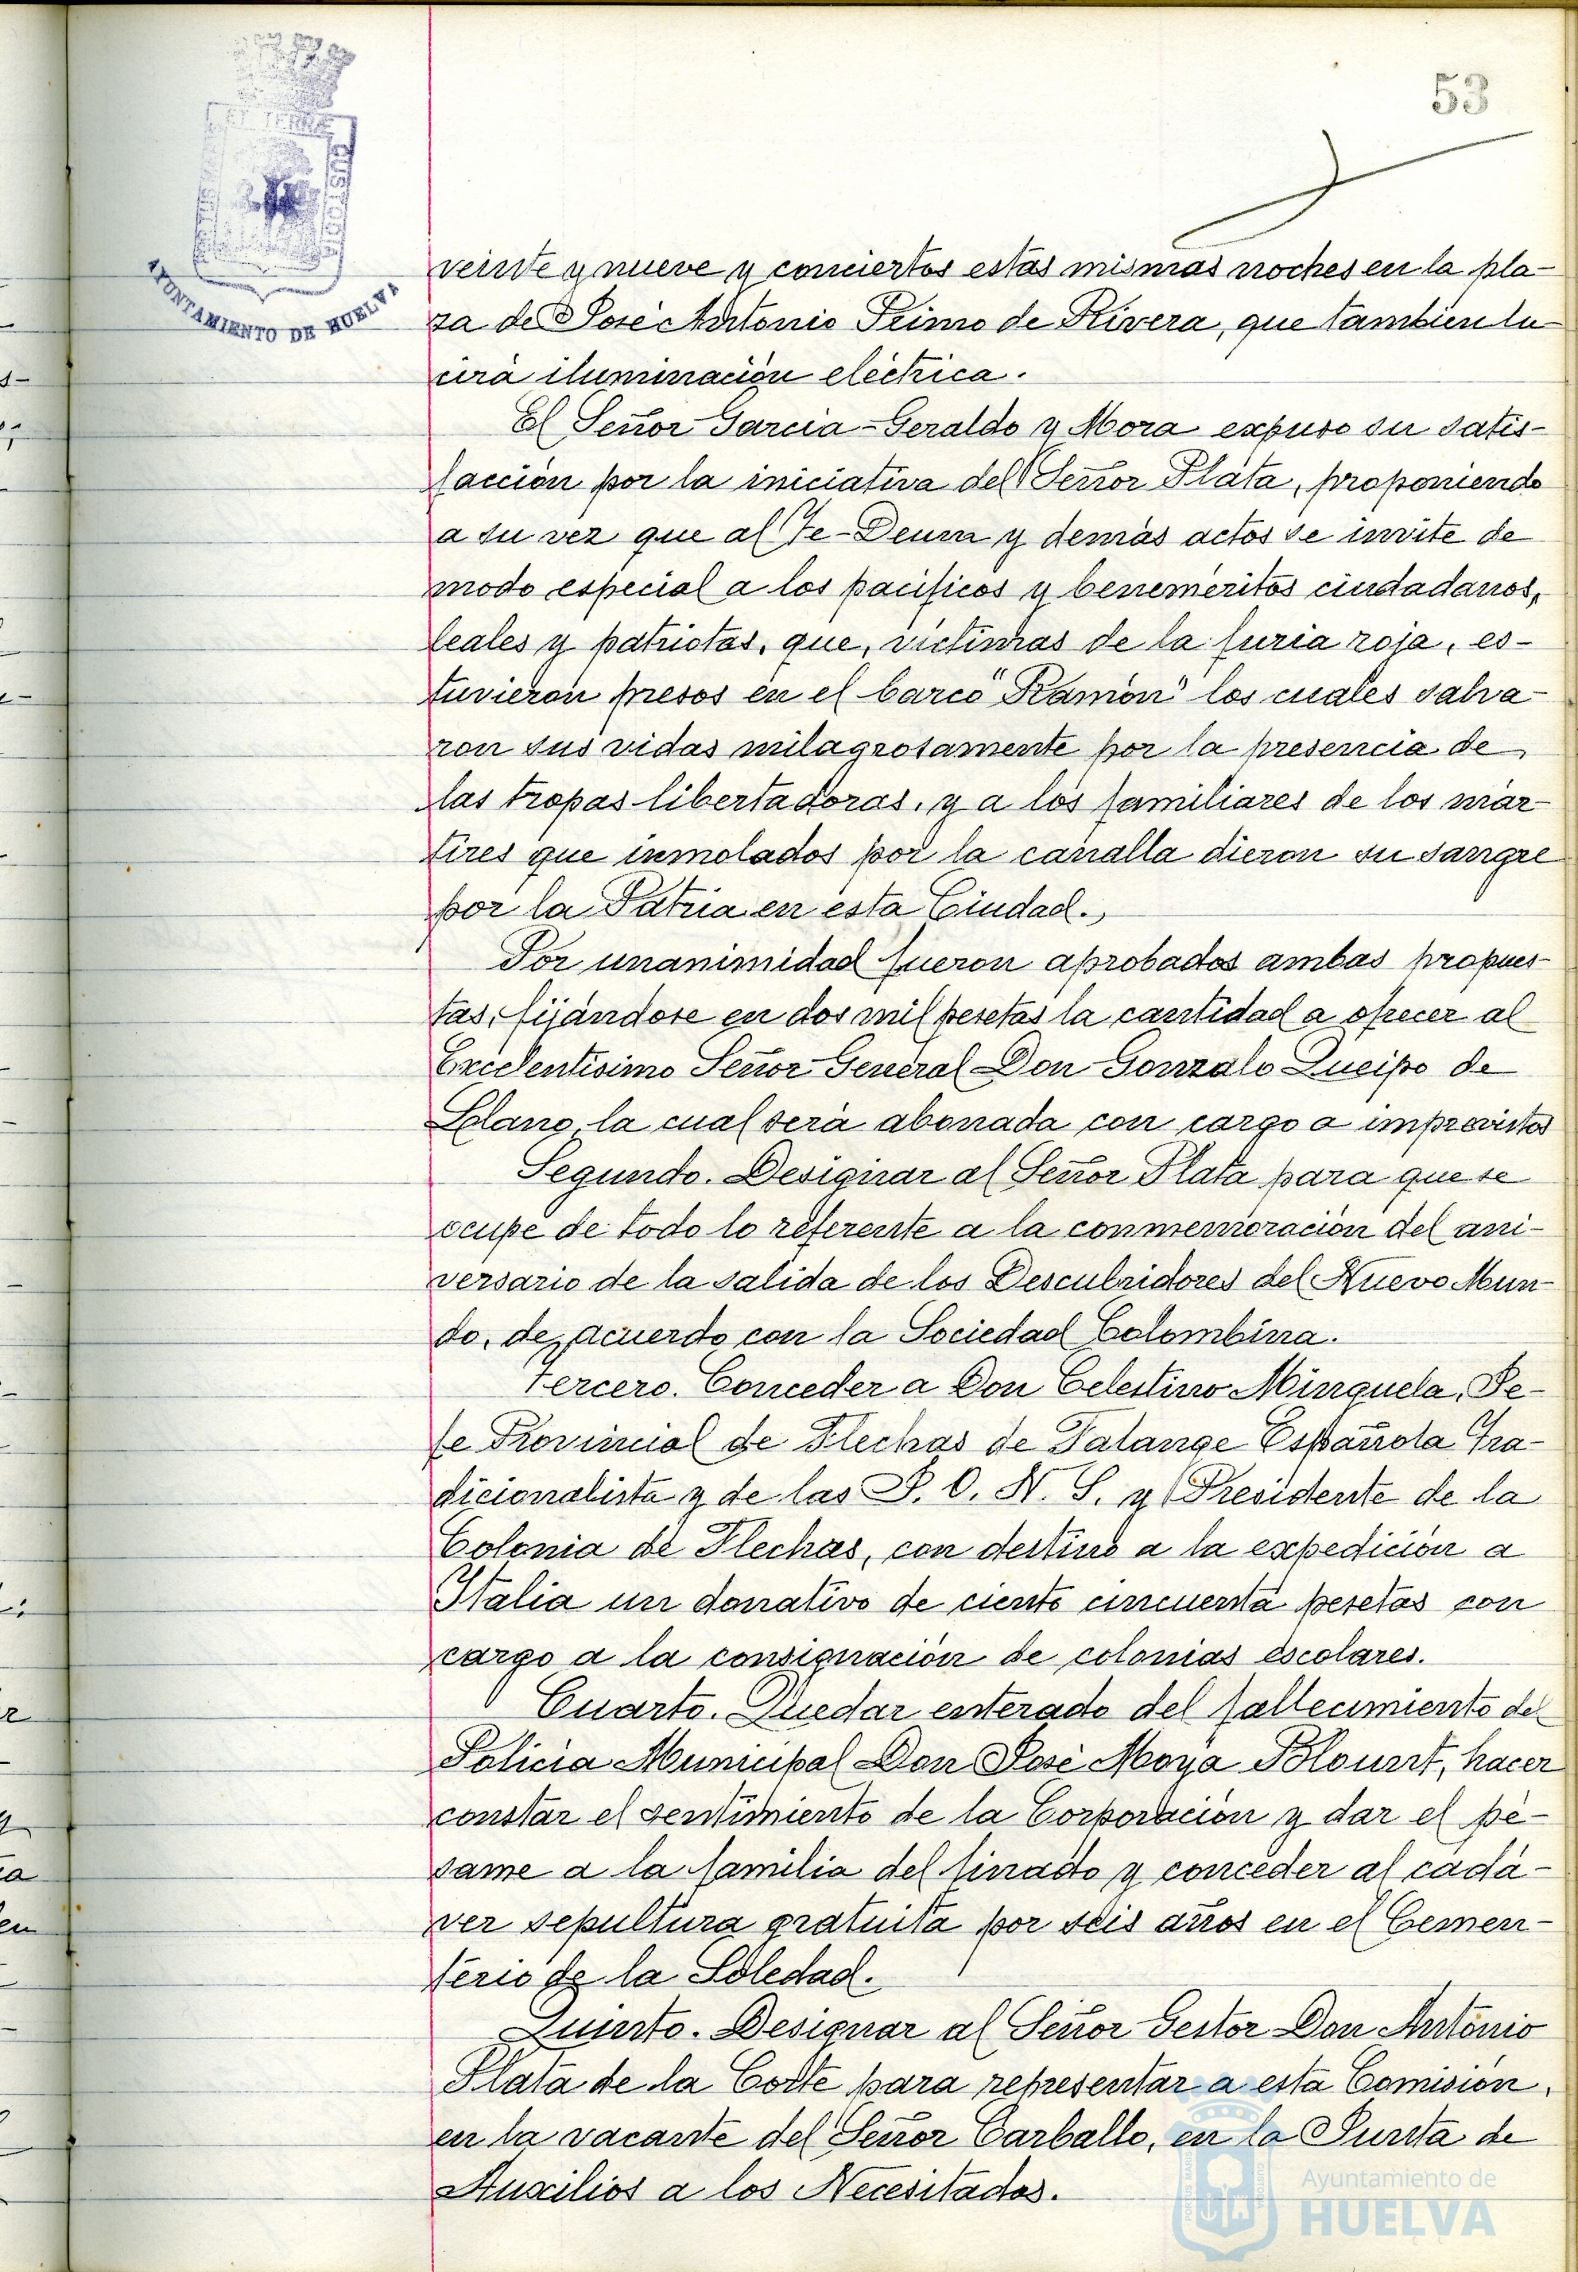 53
AYUNTAMIENTO DE HUELVA
veinte y nueve y conciertos estas mismas noches en la pla-
za de José Antonio Primo de Rivera, que también lu-
cirá iluminación eléctrica.
El Señor Garcia-Geraldo y Mora expuso su satis-
facción por la iniciativa del Señor Plata, proponiendo
a su vez que al Te-Deum y demás actos se invite de
modo especial a los pacíficos y beneméritos ciudadanos,
leales y patriotas, que, víctimas de la furia roja, es-
tuvieron presos en el barco "Ramón" los cuales salva-
ron sus vidas milagrosamente por la presencia de
las tropas libertadoras, y a los familiares de los már-
tires que inmolados por la canalla dieron su sangre
por la Patria en esta Ciudad.
Por unanimidad fueron aprobados ambas propues-
tas, fijándose en dos mil pesetas la cantidad a ofrecer al
Excelentísimo Señor General Don Gonzalo Queipo de
Llano, la cual será abonada con cargo a imprevistos
Segundo. Designar al Señor Plata para que se
ocupe de todo lo referente a la conmemoración del ani-
versario de la salida de los Descubridores del Nuevo Mun-
do, de acuerdo con la Sociedad Colombina.
Tercero. Conceder a Don Celestino Minguela, Je-
fe Provincial de Flechas de Falange Española Tra-
dicionalista y de las J. O. N. S. y Presidente de la
Colonia de Flechas, con destino a la expedición a
Italia un donativo de ciento cincuenta pesetas con
cargo a la consignación de colonias escolares.
Cuarto. Quedar enterado del fallecimiento del
Policía Municipal Don José Moya Blount, hacer
constar el sentimiento de la Corporación y dar el pé-
same a la familia del finado y conceder al cadá-
ver sepultura gratuita por seis años en el Cemen-
terio de la Soledad.
Quinto. Designar al Señor Gestor Don Antonio
Plata de la Corte para representar a esta Comisión,
en la vacante del Señor Carballo, en la Junta de
Auxilios a los Necesitados.
Ayuntamiento de
HUELVA